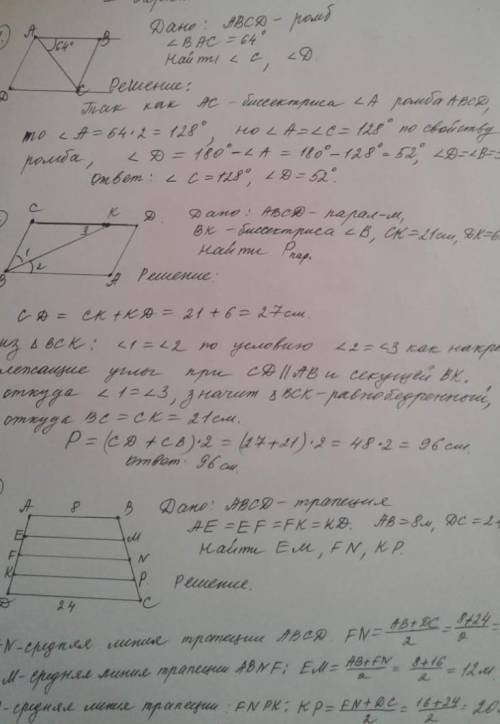 1.
A B
64°
D C
Дано: ABCD - ромб
∠BAC = 64°
Найти ∠C, ∠D.
Решение:
Так как AC - биссектриса ∠A ромба ABCD,
то ∠A = 64·2 = 128°, но ∠A = ∠C = 128° по свойству
ромба, ∠D = 180° - ∠A = 180° - 128° = 52°, ∠D = ∠B =
Ответ: ∠C = 128°, ∠D = 52°.
C K D
3
1
2
B A
Дано: ABCD - парал-м,
BK - биссектриса ∠B, CK = 21см, DK = 6
Найти Pпар.
Решение:
CD = CK + KD = 21 + 6 = 27см.
из ΔBCK: ∠1 = ∠2 по условию ∠2 = ∠3 как накр
лежащие углы при CD || AB и секущей BK.
откуда ∠1 = ∠3, значит ΔBCK - равнобедренный,
откуда BC = CK = 21см.
P = (CD + CB)·2 = (27 + 21)·2 = 48·2 = 96см.
ответ: 96см.
A 8 B
E M
F N
K P
D 24 C
Дано: ABCD - трапеция
AE = EF = FK = KD. AB = 8м, DC = 2
Найти EM, FN, KP.
Решение.
N - средняя линия трапеции ABCD FN = (AB + DC)/2 = (8 + 24)/2 =
M - средняя линия трапеции ABNF; EM = (AB + FN)/2 = (8 + 16)/2 = 12м.
- средняя линия трапеции FNPK; KP = (FN + DC)/2 = (16 + 24)/2 = 20